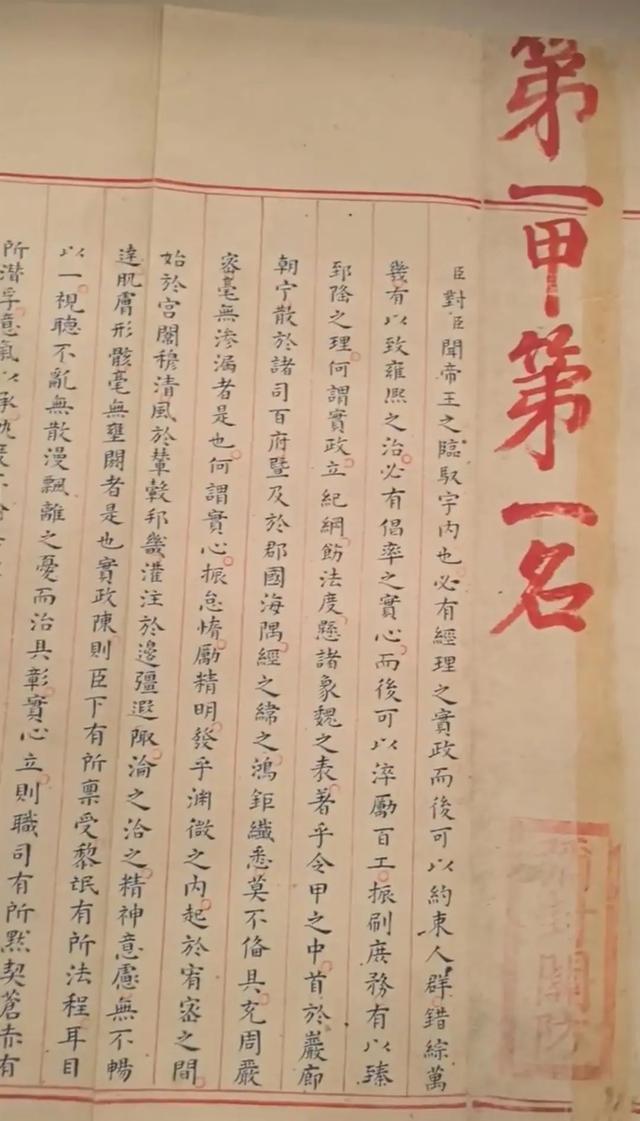 第一甲第一名
彌封關防
臣對臣聞帝王之臨馭宇内也必有經理之實政而後可以約束人群錯綜萬
幾有以致雍熙之治必有倡率之實心而後可以淬厲百工振刷庶務有以臻
郅隆之理何謂實政立紀綱飭法度懸諸象魏之表著乎令甲之中首於巖廊
朝宁散於諸司百府暨及於郡國海隅經之緯之鴻鉅纖悉莫不俻具充周嚴
密毫無滲漏者是也何謂實心振怠惰勵精明發乎淵微之内起於宥密之間
始於宮闈穆清風於輦轂邦畿灌注於邊疆遐陬淪之洽之精神意慮無不暢
達肌膚形骸毫無壅閼者是也實政陳則臣下有所禀受黎氓有所法程耳目
以一視聽不亂無散漫飄離之憂而治具彰實心立則職司有所默契蒼赤有
所潛孚意氣以承